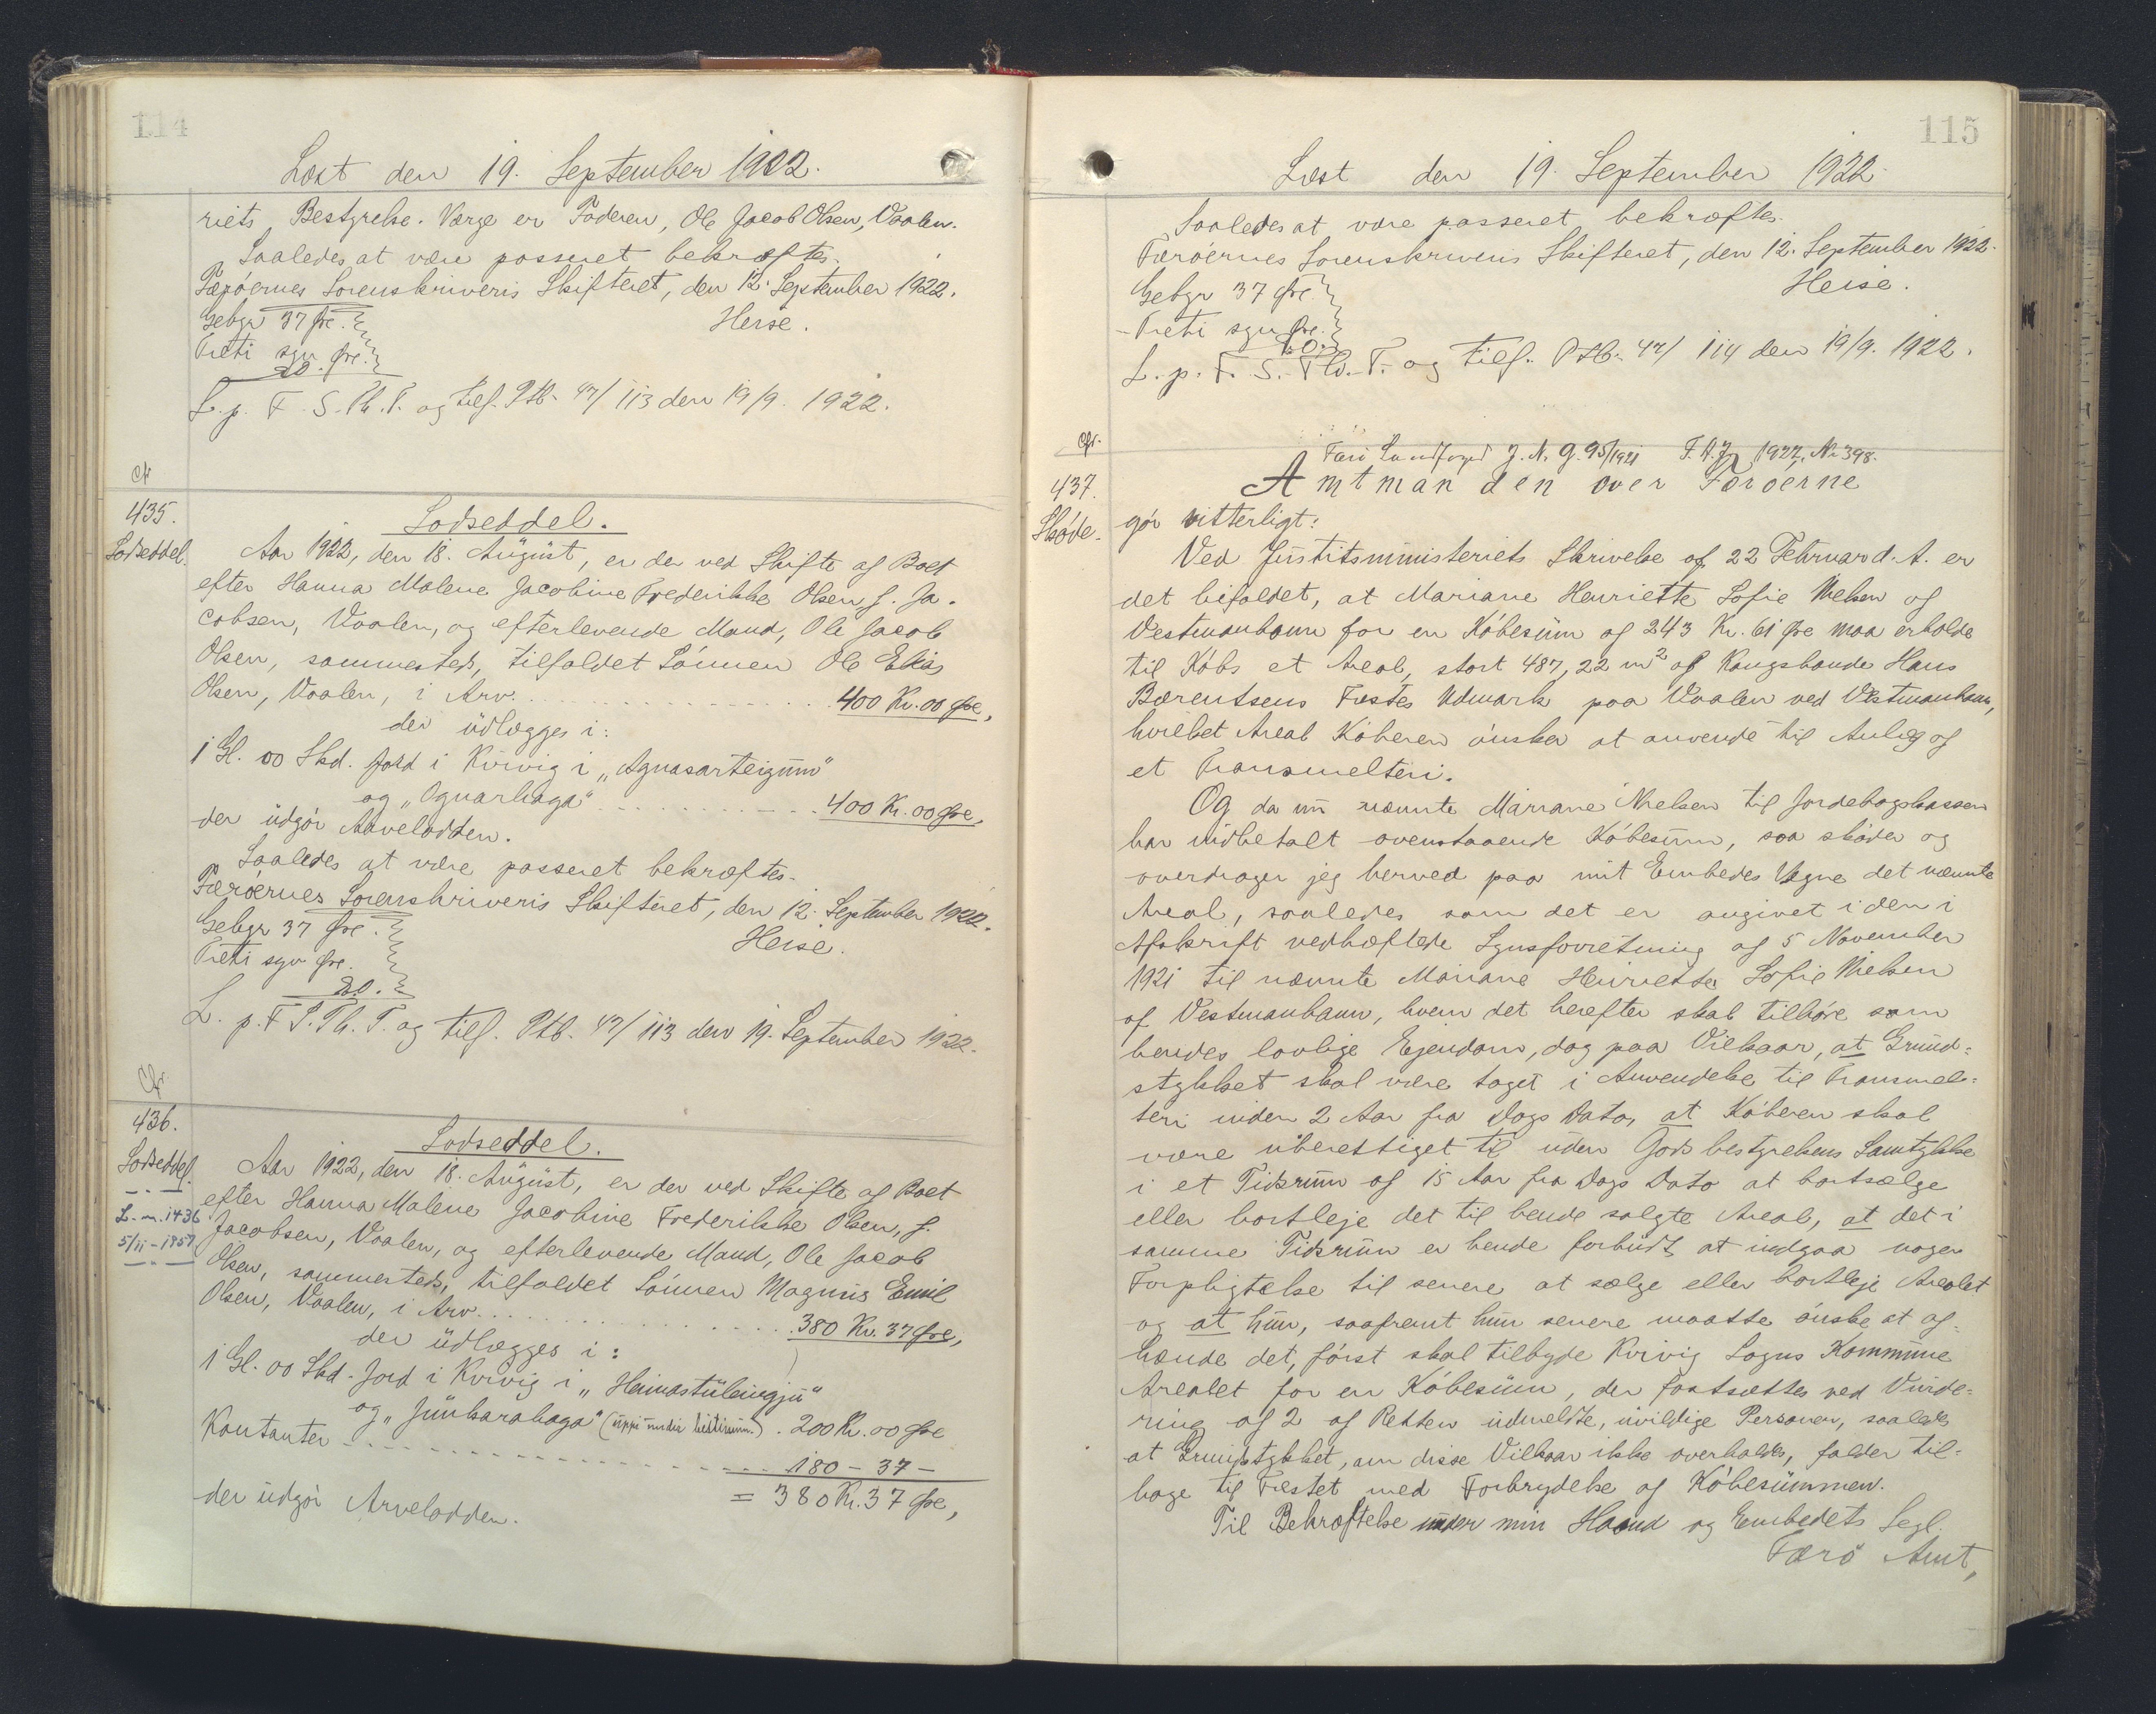 114
Læst den 19. September 1922.
riets Bestyrelse. Værge er Faderen, Ole Jacob Olsen, Vaalen.
Saaledes at være passeret bekræftes.
Færöernes Sorenskriveris Skifteret, den 12. September 1922.
Gebyr 37 Øre.
Heise.
Treti syv Øre.
L. p. F. S. Th. T. og tilf. Ptb. 47/113 den 19/9. 1922.
Cfr
435.
Lodseddel.
Lodseddel.
Aar 1922, den 18. August, er der ved Skifte af Boet
efter Hanna Malene Jacobine Frederikke Olsen f. Ja-
cobsen, Vaalen, og efterlevende Mand, Ole Jacob
Olsen, sammesteds, tilfaldet Sönnen Ole Elias
Olsen, Vaalen, i Arv. 400 Kr. 00 Øre,
der udlægges i:
1 Gl. 00 Skd. Jord i Kvivig i „Agnasarteigum"
og „Ognarhaga" 400 Kr. 00 Øre,
der udgör Arvelodden.
Saaledes at være passeret bekræftes.
Færöernes Sorenskriveris Skifteret, den 12. September 1922.
Gebyr 37 Øre.
Heise.
Treti syv Øre.
L. p. F. S. Th. T. og tilf. Ptb. 47/113 den 19. September 1922.
Cfr
436.
Lodseddel.
Lodseddel.
L. n. 1436
5/11-1957
Aar 1922, den 18. August, er der ved Skifte af Boet
efter Hanna Malene Jacobine Frederikke Olsen, f.
Jacobsen, Vaalen, og efterlevende Mand, Ole Jacob
Olsen, sammesteds, tilfaldet Sönnen Magnus Emil
Olsen, Vaalen, i Arv. 380 Kr. 37 Øre,
der udlægges i:
1 Gl. 00 Skd. Jord i Kvivig i „Heimastuleingju"
og „Junkarahaga" (uppi undir ) . 200 Kr. 00 Øre
Kontanter 180 - 37 -
= 380 Kr. 37 Øre,
der udgör Arvelodden.
115
Læst den 19. September 1922.
Saaledes at være passeret bekræftes.
Færöernes Sorenskriveris Skifteret, den 12. September 1922.
Gebyr 37 Øre.
Heise.
Treti syv Øre.
L. p. F. S. Th. T. og tilf. Ptb. 47/114 den 19/9. 1922.
Cfr.
Færö Landfoged J. N. G. 95/1921 F. A. J. 1922, No 398.
437.
Skøde.
Amtmanden over Færöerne
gör vitterligt:
Ved Justitsministeriets Skrivelse af 22 Februar d. A. er
det bifaldet, at Mariane Henriette Sofie Nielsen af
Vestmanhavn for en Köbesum af 243 Kr. 61 Øre maa erholde
til Köbs et Areal, stort 487,22 m² af Kongsbonde Hans
Bærentsens Fæstes Udmark paa Vaalen ved Vestmanhavn,
hvilket Areal Köberen önsker at anvende til Anlæg af
et Transmelteri.
Og da nu nævnte Mariane Nielsen til Jordebogskassen
har indbetalt ovenstaaende Köbesum, saa sköder og
overdrager jeg herved paa mit Embedes Vegne det nævnte
Areal, saaledes som det er angivet i den i
Afskrift vedhæftede Synsforretning af 5 November
1921 til nævnte Mariane Henriette Sofie Nielsen
af Vestmanhavn, hvem det herefter skal tilhöre som
hendes lovlige Ejendom, dog paa Vilkaar, at Grund-
stykket skal være taget i Anvendelse til Transmel-
teri inden 2 Aar fra Dags Dato, at Köberen skal
være uberettiget til uden Godsbestyrelsens Samtykke
i et Tidsrum af 15 Aar fra Dags Dato at bortsælge
eller bortleje det til hende solgte Areal, at det i
samme Tidsrum er hende forbudt at indgaa nogen
Forpligtelse til senere at sælge eller bortleje Arealet
og at hun, saafremt hun senere maatte önske at af-
hænde det, först skal tilbyde Kvivig Sogns Kommune
Arealet for en Köbesum, der fastsættes ved Vurde-
ring af 2 af Retten udmeldte, uvildige Personer, saaledes
at Grundstykket, om disse Vilkaar ikke overholdes, falder til-
bage til Fæstet med Forbrydelse af Köbesummen.
Til Bekræftelse under min Haand og Embedets Segl.
Færö Amt,